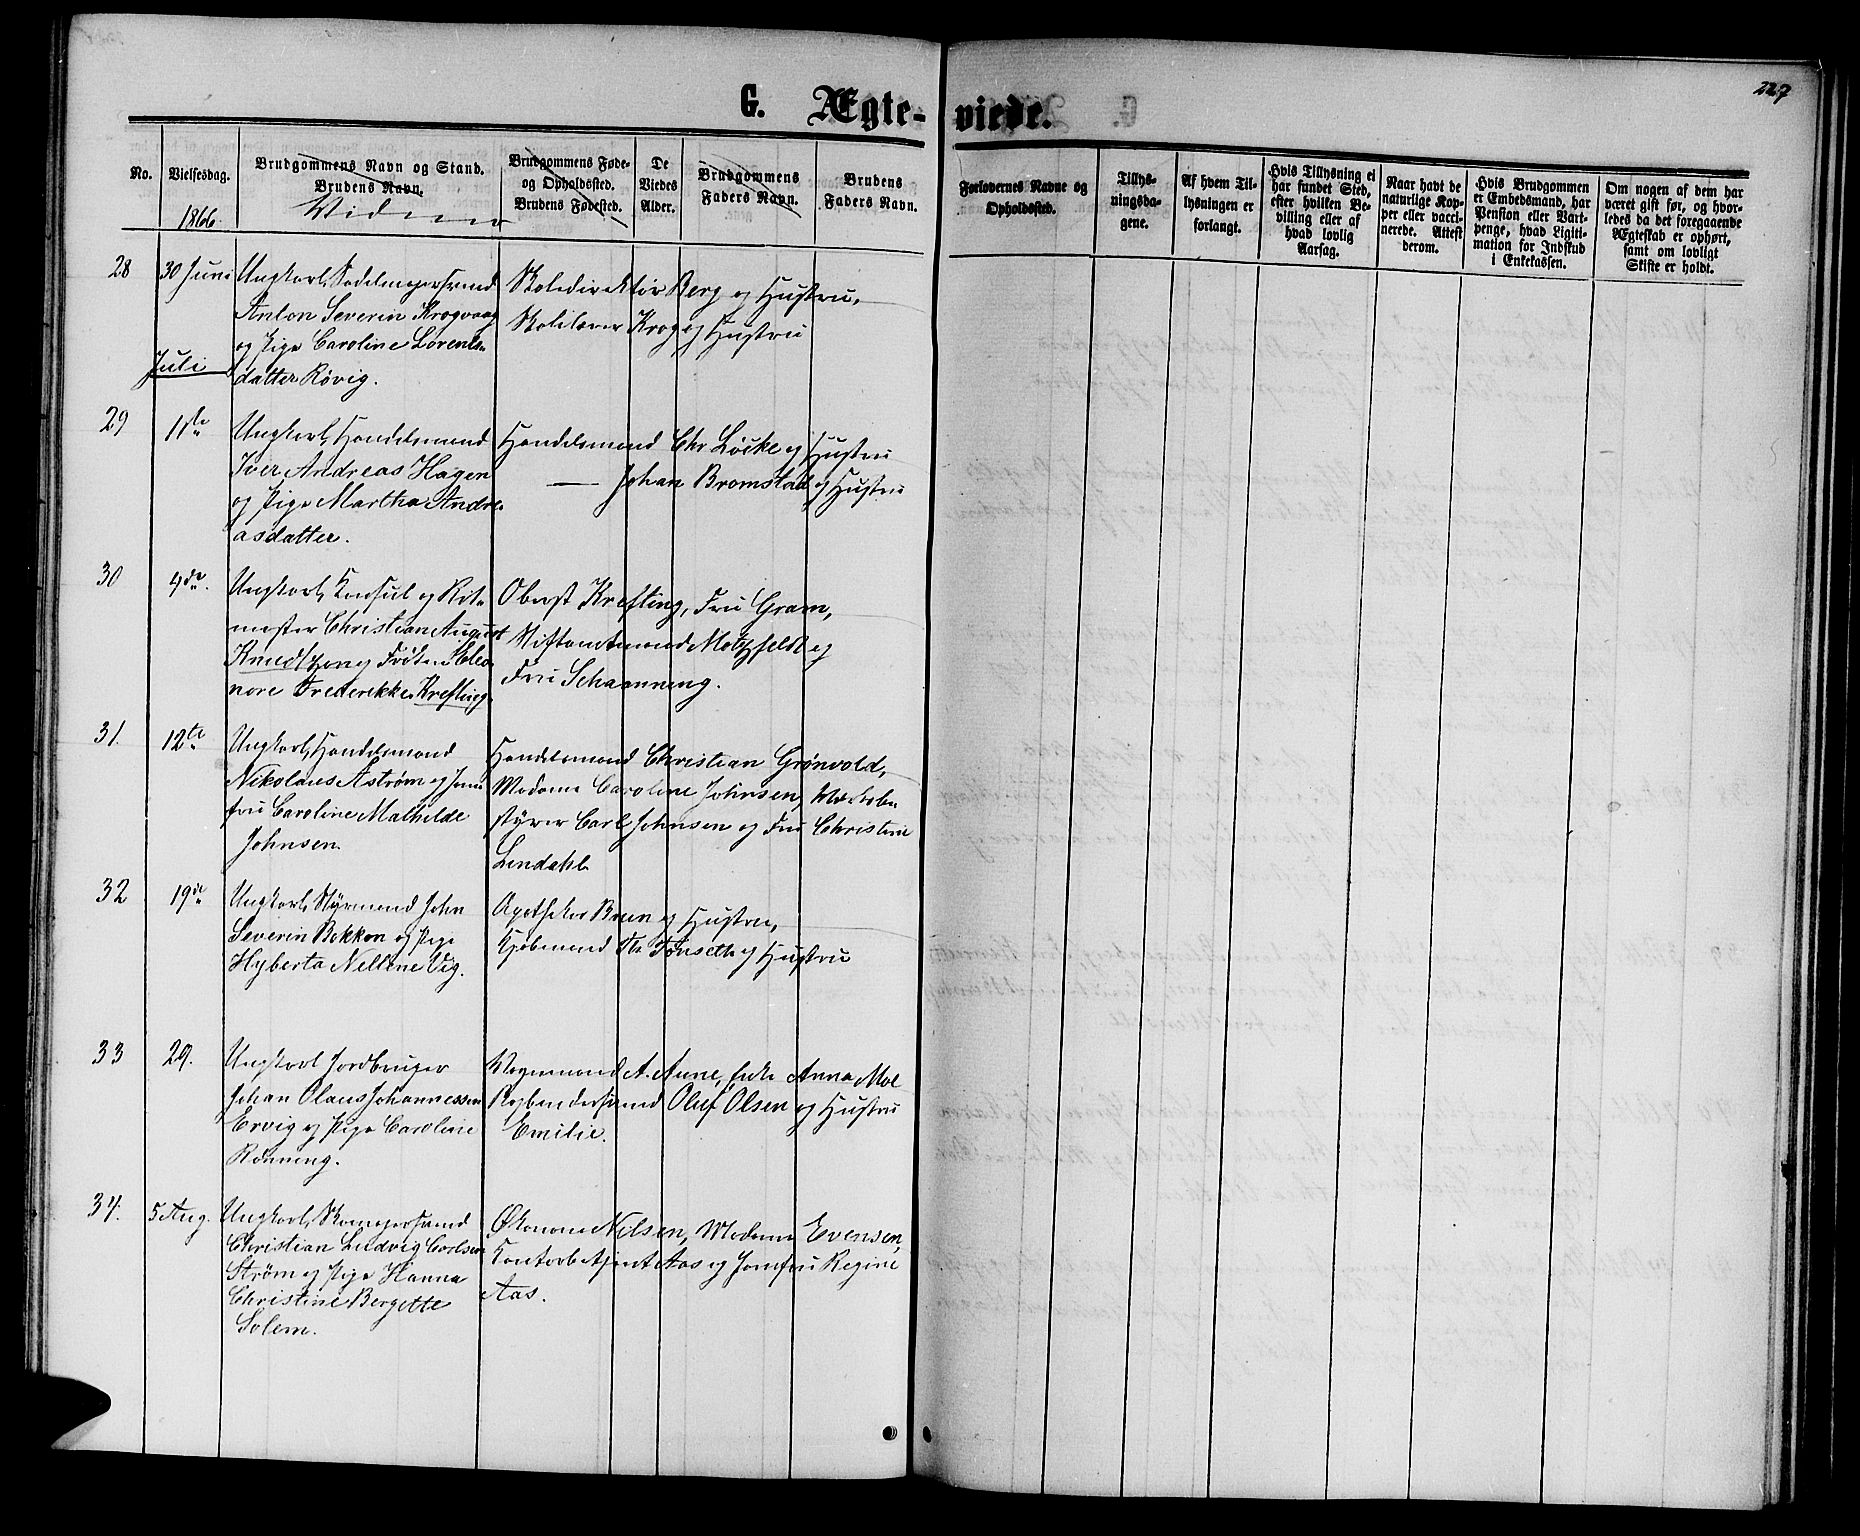 227
G. Ægteviede.
No.
Vielsesdag.
Brudgommens Navn og Stand.
Brudens Navn.
Brudgommens Føde-
og Opholdssted.
Brudens Fødested.
De
Viedes
Alder.
Brudgommens
Faders Navn.
Brudens
Faders Navn.
Forlovernes Navne og
Opholdssted.
Tillys-
ningsda-
gene.
Af hvem Til-
lysningen er
forlangt.
Hvis Tillysning ei
har fundet Sted,
efter hvilken Be-
villing eller af
hvad lovlig
Aarsag.
Naar havt de
naturlige Kop-
per eller vacci-
nerede. Attest
derom.
Hvis Brudgommen
er Embedsmand, har
Pension eller Vart-
penge, hvad Ligiti-
mation for Indskud
i Enkekassen.
Om nogen af dem har
været gift før, og hvor-
ledes da det foregaaende
Ægteskab er ophørt,
samt om lovligt
Skifte er holdt.
1866
28 30 Juni Ungkarl, Sadelmagersvend
Anton Severin Krogvaag
og Pige Caroline Lorents-
datter Røvig.
Skoledirektør Berg og Hustru,
Skolelærer Krog og Hustru
Juli
29 1ste Ungkarl, Handelsmand
Iver Andreas Hagen
og Pige Martha Andre-
asdatter.
Handelsmand Chr Löcke og Hustru
— Johan Bromstad og Hustru
30 4de. Ungkarl, Konsul og Rit-
mester Christian August
Knudtzon og Frøken Eleo-
nore Frederikke Krefting.
Oberst Krefting, Fru Gram,
Stiftamtmand Motzfeldt og
Fru Schanning.
31. 12te Ungkarl, Handelsmand
Nikolaus Åstrøm og Jom-
fru Caroline Mathilde
Johnsen.
Handelsmand Christian Grönvold,
Madame Caroline Johnsen,
styrer Carl Johnsen og Fru Christine
Lindahl.
32 19de Ungkarl, Styrmand John
Severin Bekken og Pige
Hyberta Nelline Vig.
Apotheker Brun og Hustru,
Kjøbmand Th. Tønseth og Hustru
33 29. Ungkarl Jordbruger
Johan Olaus Johannessen
Ervig og Pige Caroline
Rönning.
Vognmand A. Aune, Enke Anna Moe
Bogbindersvend Oluf Olsen og Hustru
Emilie.
34. 5 Aug. Ungkarl, Skomagersvend
Christian Ludvig Carlsen
Strøm og Pige Hanna
Christine Bergette
Solem.
Økonom Nilsen, Madame Evensen,
Kontorbetjent Aas og Jomfru Regine
Aas.